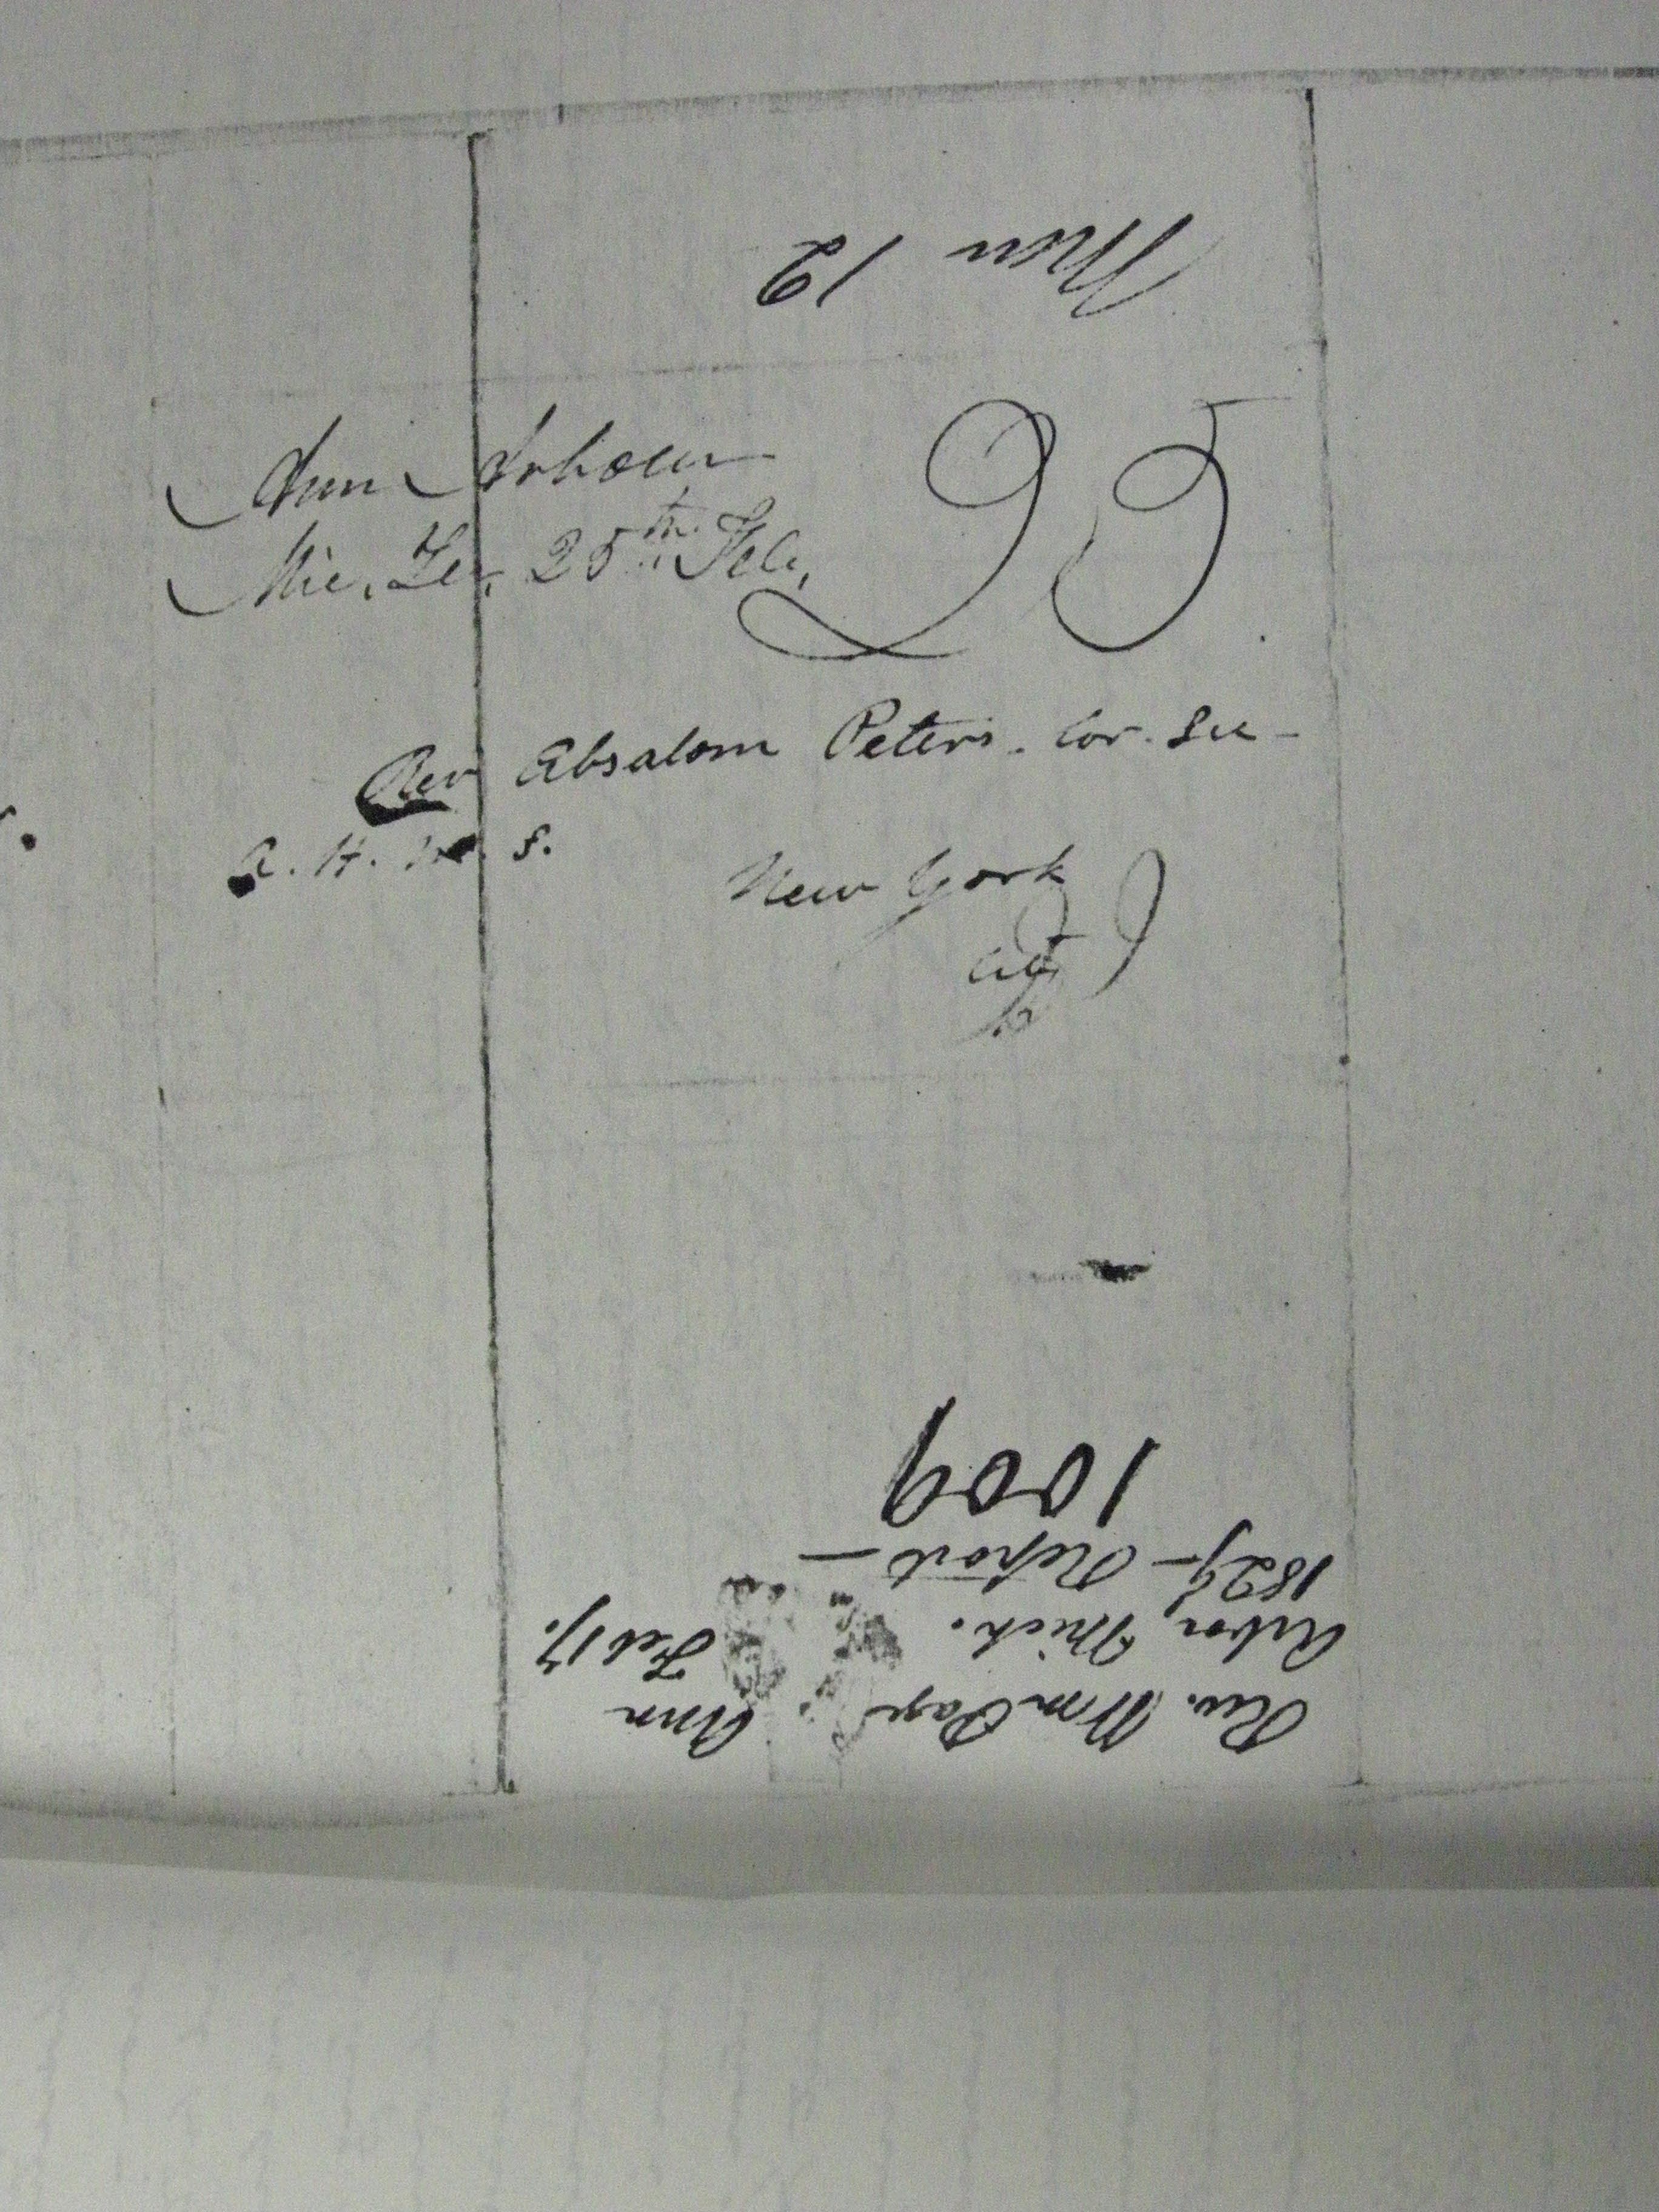 Mar 12
Ann Arbour
Mic. Ter. 25th Feb.
25
Rev Absalom Peters. Cor. Sec -
A. H. M. S.
New York
City
Rev. Wm Page Ann
Arbor, Mich. Feb 17.
1829 - Report -
1009